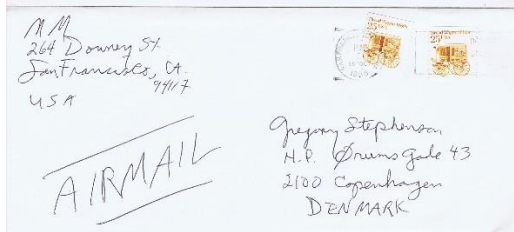 M M
264 Downey St.
San Francisco, CA.
94117
USA
25
25
AIRMAIL
Gregory Stephenson
H.P. Ørums Gade 43
2100 Copenhagen
DENMARK